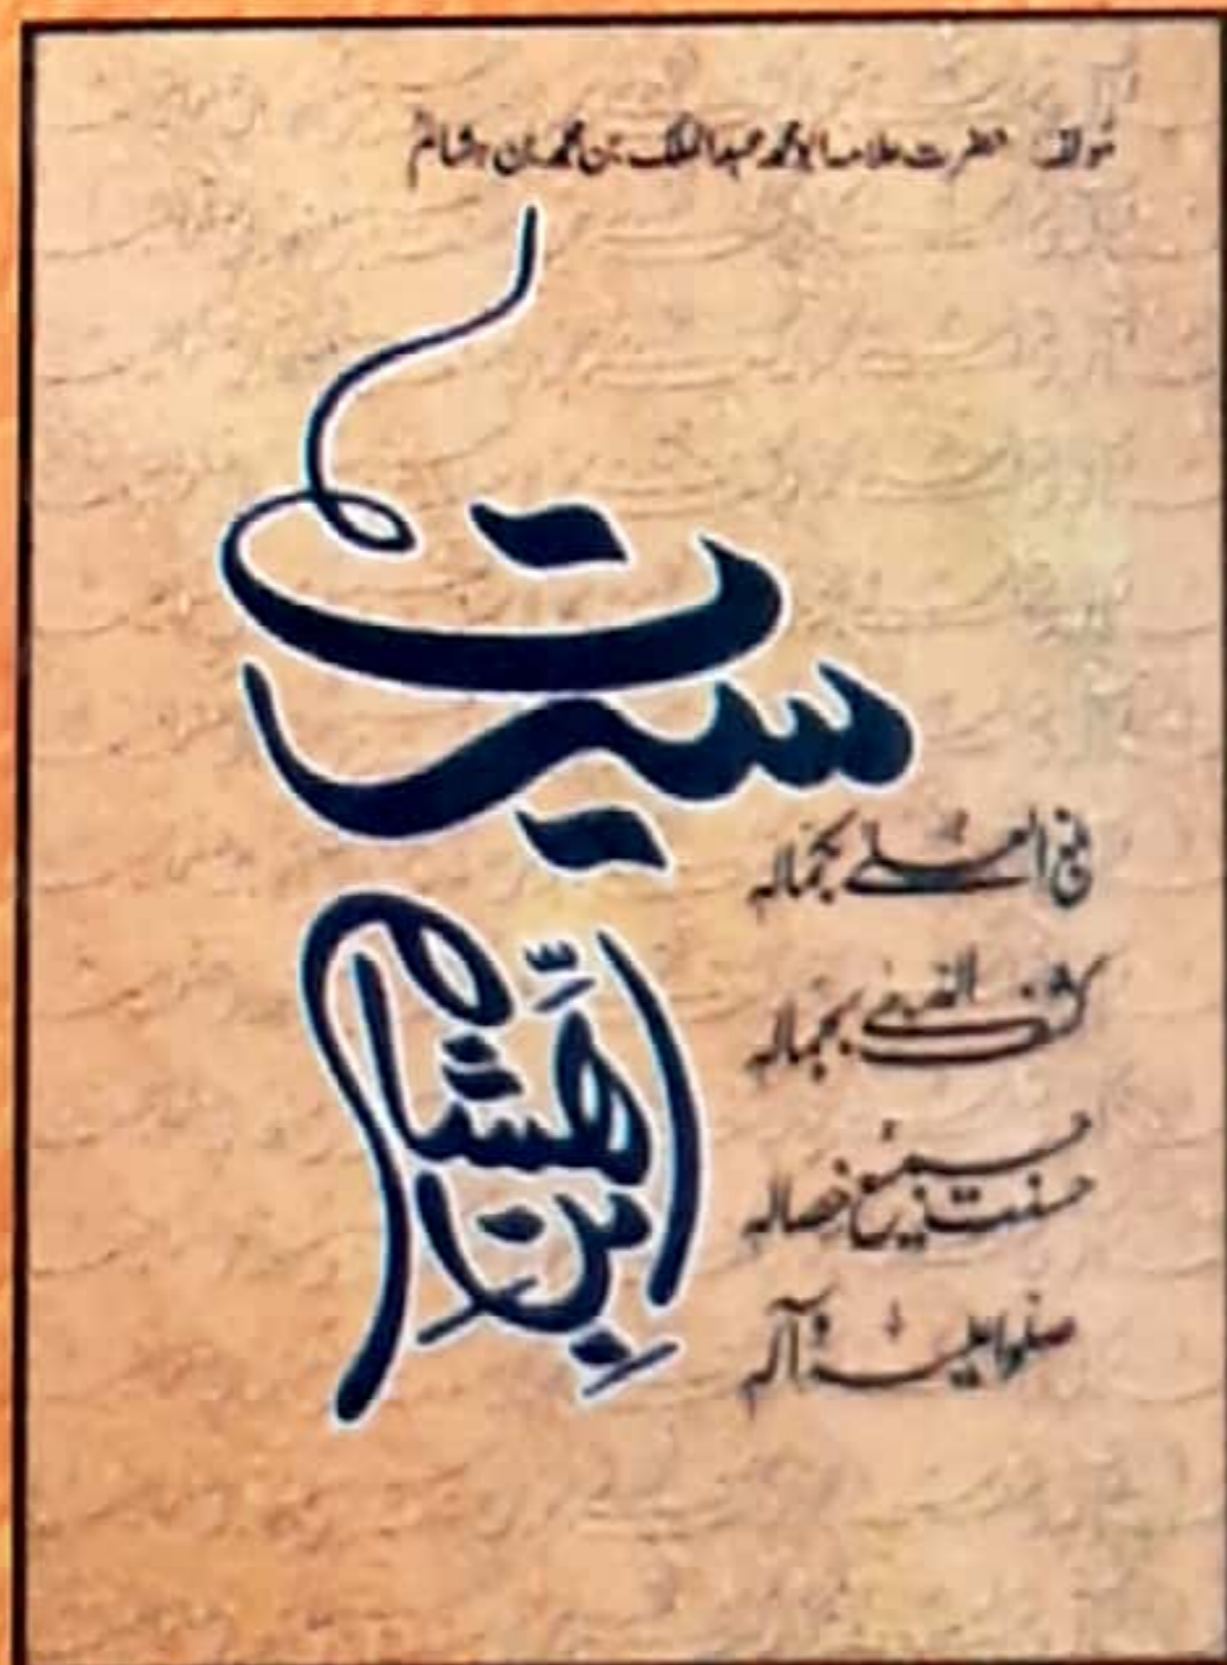 مؤلف: حضرت علامہ ابو محمد عبدالملک بن محمد بن ہشام
سیرت
ابن ہشام
بلغ العلیٰ بکمالہ
کشف الدجیٰ بجمالہ
حسنت جمیع خصالہ
صلوا علیہ و آلہ